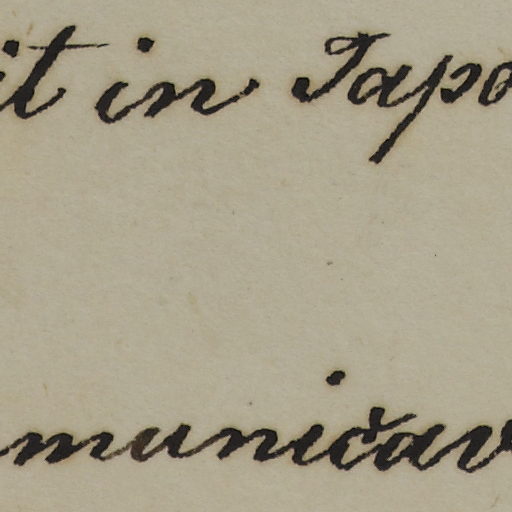 it in Tapo
municav